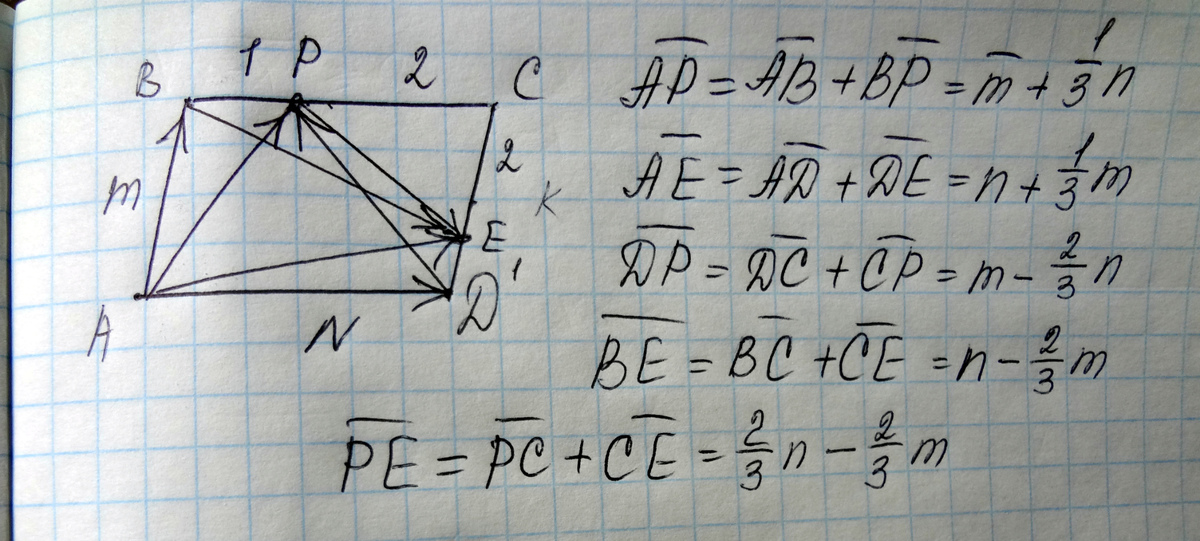 B 1 P 2 C
m
2
K
E
1
A
N
D
A̅P̅ = A̅B̅ + B̅P̅ = m̅ + 1/3 n
A̅E̅ = A̅D̅ + D̅E̅ = n + 1/3 m
D̅P̅ = D̅C̅ + C̅P̅ = m - 2/3 n
B̅E̅ = B̅C̅ + C̅E̅ = n - 2/3 m
P̅E̅ = P̅C̅ + C̅E̅ = 2/3 n - 2/3 m